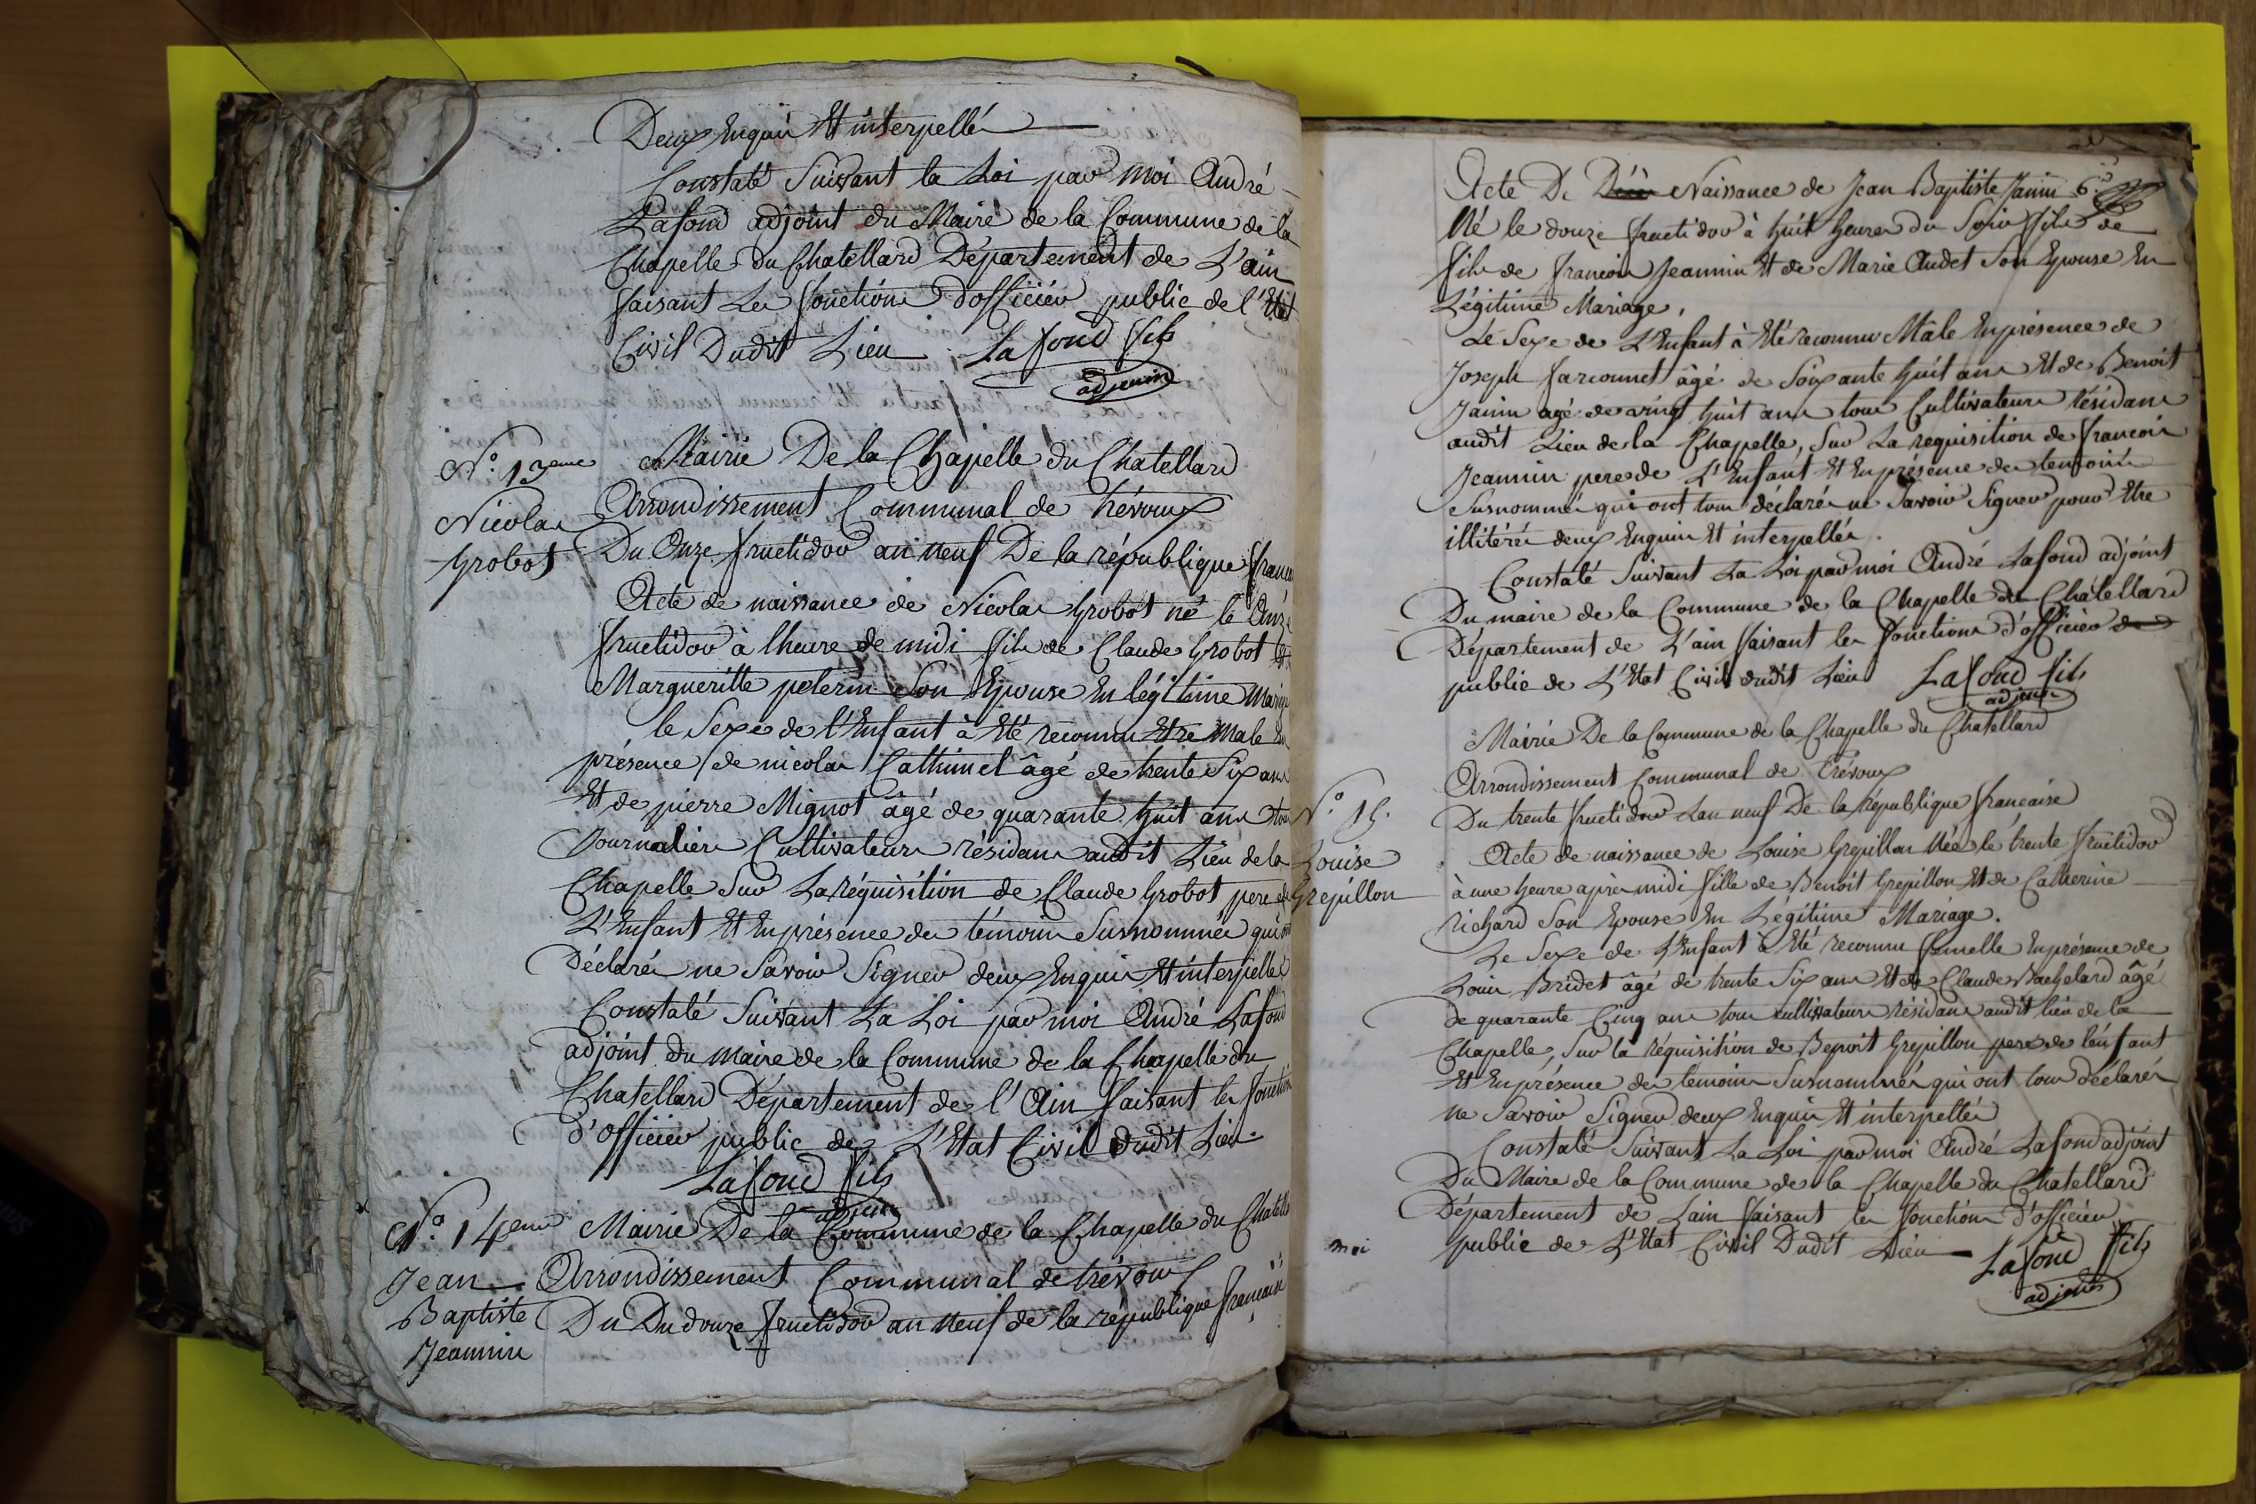 Deux Enquis Et interpellés
Constaté Suivant la Loi par moi André
Lafond adjoint du Maire de la Commune de la
Chapelle du Chatellard Département de L'ain
faisant Les fonctions d'officier public de l'Etat
Civil Dudit Lieu Lafond fils
adjoint
N.o 13eme
Nicolas
Grobot
Mairie De la Chapelle du Chatellard
Arrondissement Communal de trévoux
Du Onze fructidor an neuf De la république
Acte de naissance de Nicolas Grobot né le Onze
fructidor à lheure de midi fils de Claude Grobot
Margueritte pelerin Son Epouse En légitime
le Sexe de l'Enfant à Eté reconnu Etre Male En
présence de nicolas Cathimel âgé de trente Six ans
Et de pierre Mignot âgé de quarante huit ans tous
Journaliers Cultivateurs résidans audit Lieu de la
Chapelle Sur La réquisition de Claude Grobot pere de
L'Enfant Et En présence des témoins Susnommés qui ont
Déclarés ne Savoir Signer deux Enquis Et interpellés
Constaté Suivant La Loi par moi André Lafond
adjoint du Maire de la Commune de la Chapelle du
Chatellard Département de l'Ain faisant les fonctions
d'officier public de L'Etat Civil dudit Lieu
Lafond fils
adjoint
N.o 14eme
Jean
Baptiste
Jeannin
Mairie De la Commune de la Chapelle du
Arrondissement Communal de trévoux
Du Du douze fructidor an neuf de la république française
Acte De Naissance de Jean Baptiste Janin
Né le douze fructidor à huit heures du Soir fils de
fils de francois Jeannin Et de Marie Audet Son Epouse En
Légitime Mariage,
Le Sexe de L'Enfant à Eté reconnu Mâle En présence de
Joseph farconnet âgé de Soixante huit ans Et de Benoit
Janin agé de vingt huit ans tous Cultivateurs Résidans
audit Lieu de la Chapelle, Sur La requisition de francois
Jeannin pere de L'Enfant Et En présence des temoins
Susnommés qui ont tous déclarés ne Savoir Signer pour Etre
illitérés deux Enquis Et interpellés.
Constaté Suivant La Loi par moi André Lafond adjoint
Du maire de la Commune de la Chapelle du Châtellard
Département de L'ain faisant les fonctions d'officier de
public de L'Etat Civil dudit Lieu Lafond fils
adjoint
N.o 15.
Louise
Grepillon
Mairie De la Commune de la Chapelle du Chatellard
Arrondissement Communal de Trévoux
Du trente fructidor Lan neuf De la république française
Acte de naissance de Louise Grepillon Née le trente fructidor
à une heure après midi fille de Benoit Grepillon Et de Catherine
richard Son Epouse En Légitime Mariage.
Le Sexe de L'Enfant à Eté reconnu femelle En présence de
Louis Bridet âgé de trente Six ans Et de Claude Bachelard âgé
de quarante Cinq ans tous cultivateurs résidans audit lieu de la
Chapelle, Sur la réquisition de Benoit Grepillon pere de l'enfant
Et En présence des temoins Susnommés qui ont tous déclarés
ne Savoir Signer deux Enquis Et interpellés
Constaté Suivant La Loi par moi André Lafond adjoint
Du Maire de la Commune de la Chapelle du Chatellard
Département de Lain faisant les fonctions d'officier
public de L'Etat Civil Dudit Lieu Lafond fils
adjoint
moi